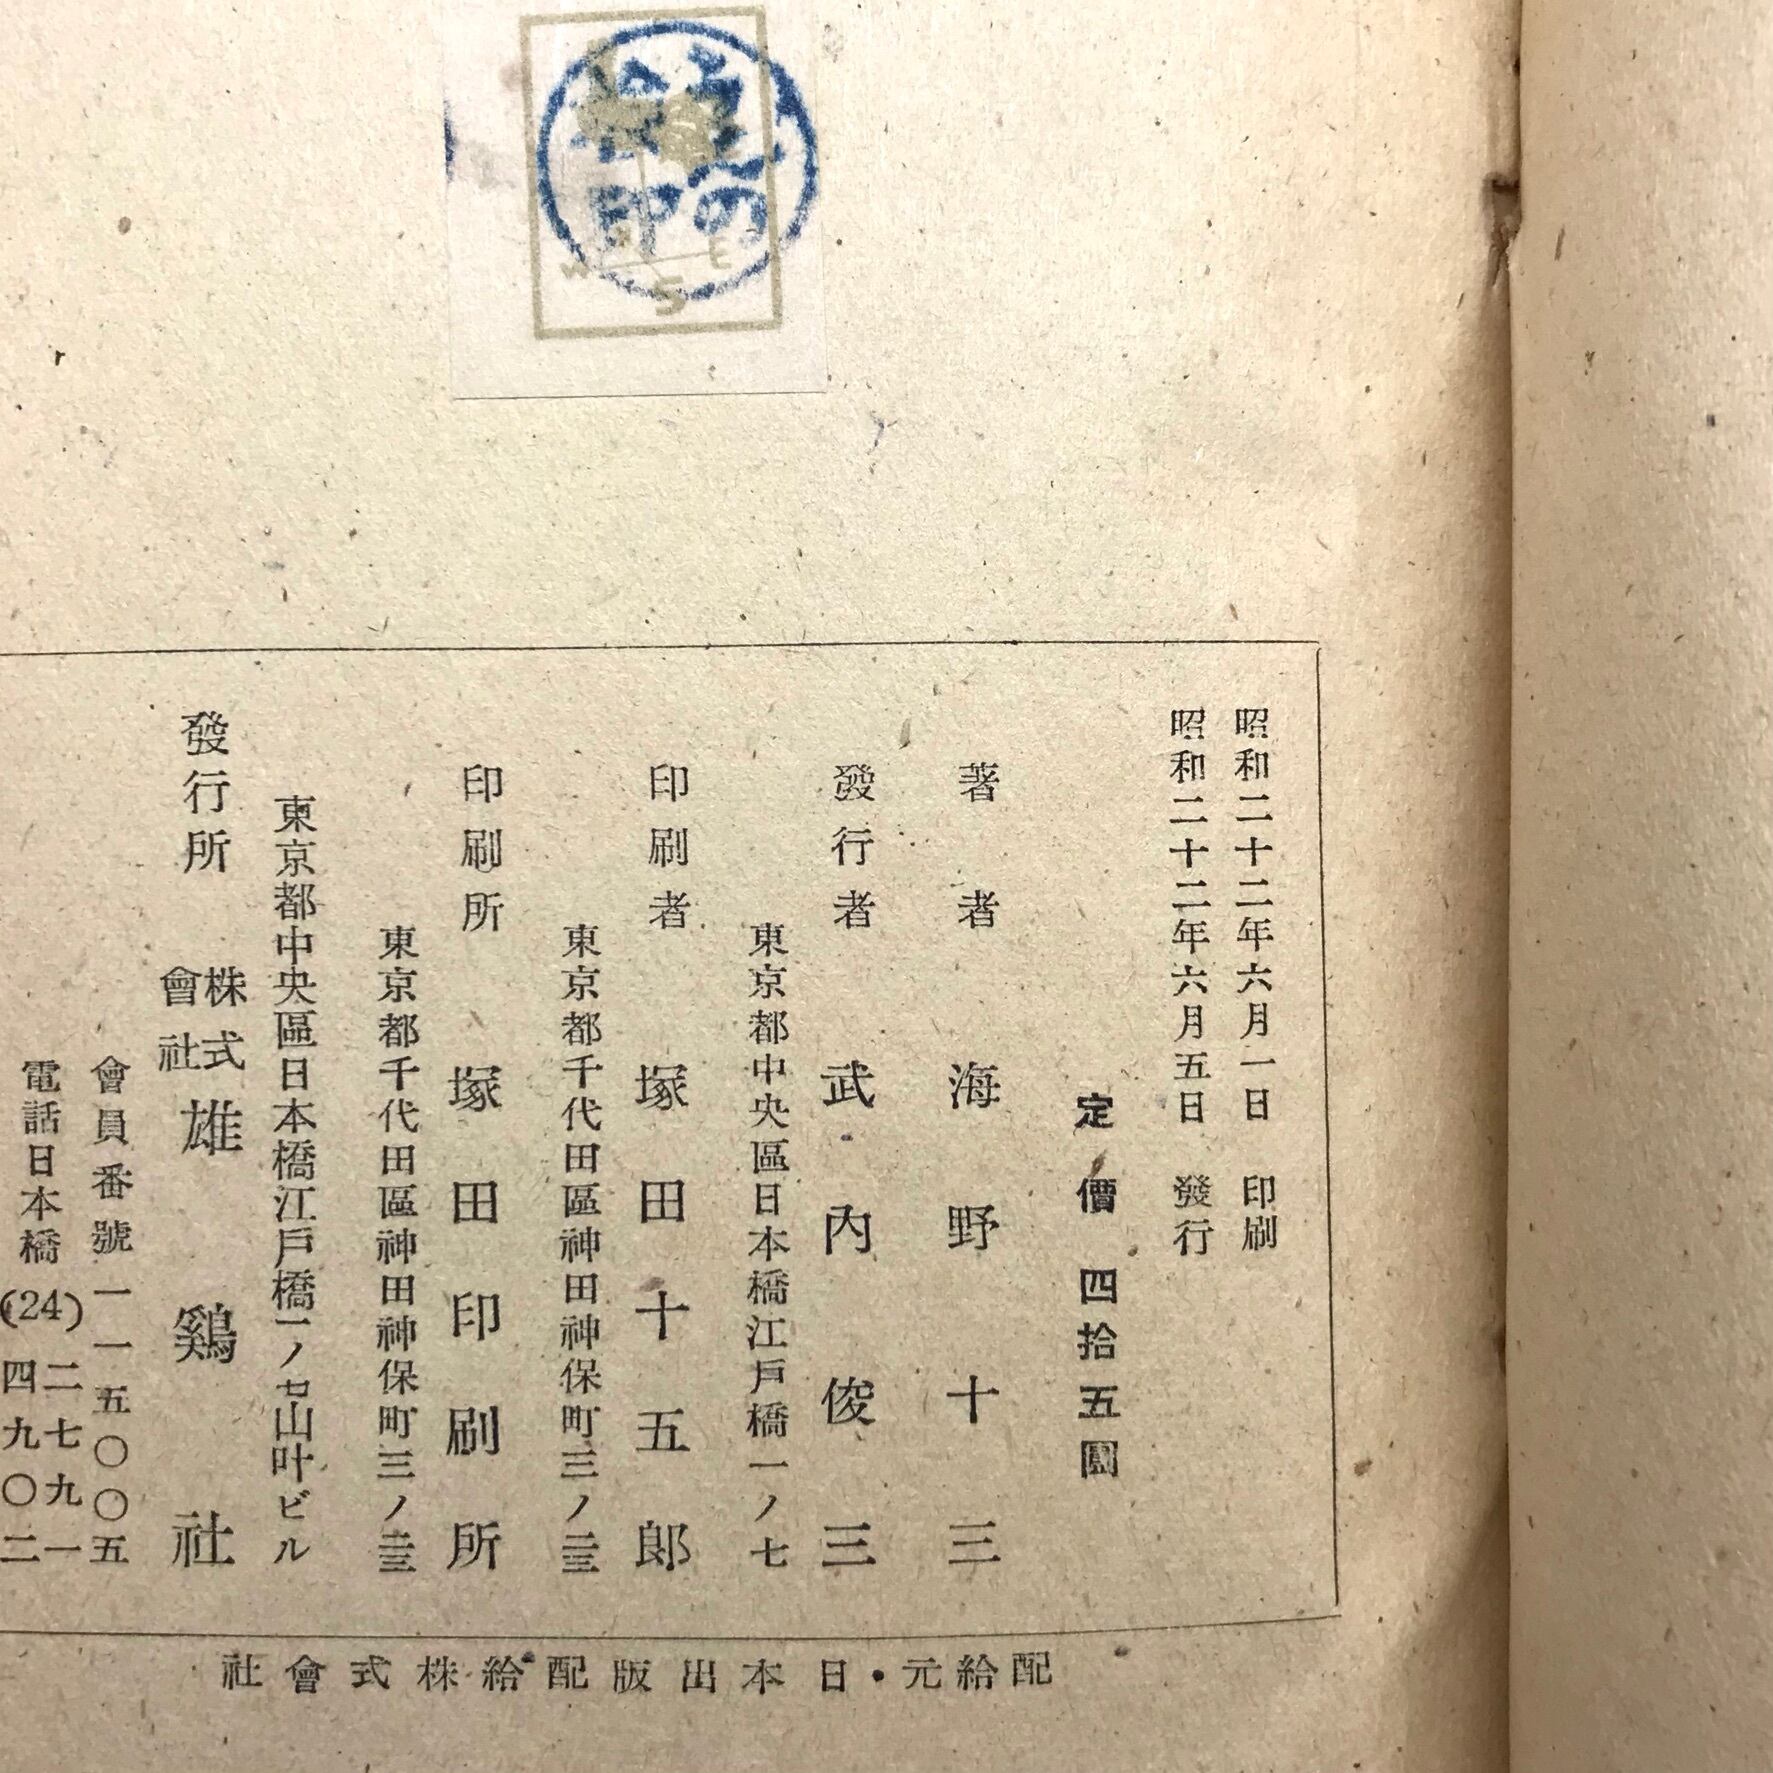 うんの
檢印
W E
S
昭和二十二年六月一日 印刷
昭和二十二年六月五日 發行
定價 四拾五圓
著者 海野十三
發行者 武內俊三
東京都中央區日本橋江戶橋一ノ七
印刷者 塚田十五郎
東京都千代田區神田神保町三ノ
印刷所 塚田印刷所
東京都千代田區神田神保町三ノ
東京都中央區日本橋江戶橋一ノ七山叶ビル
發行所 株式會社 雄鷄社
會員番號一一五〇〇五
電話日本橋(24)二七九一
四九〇二
配給元・日本出版配給株式會社